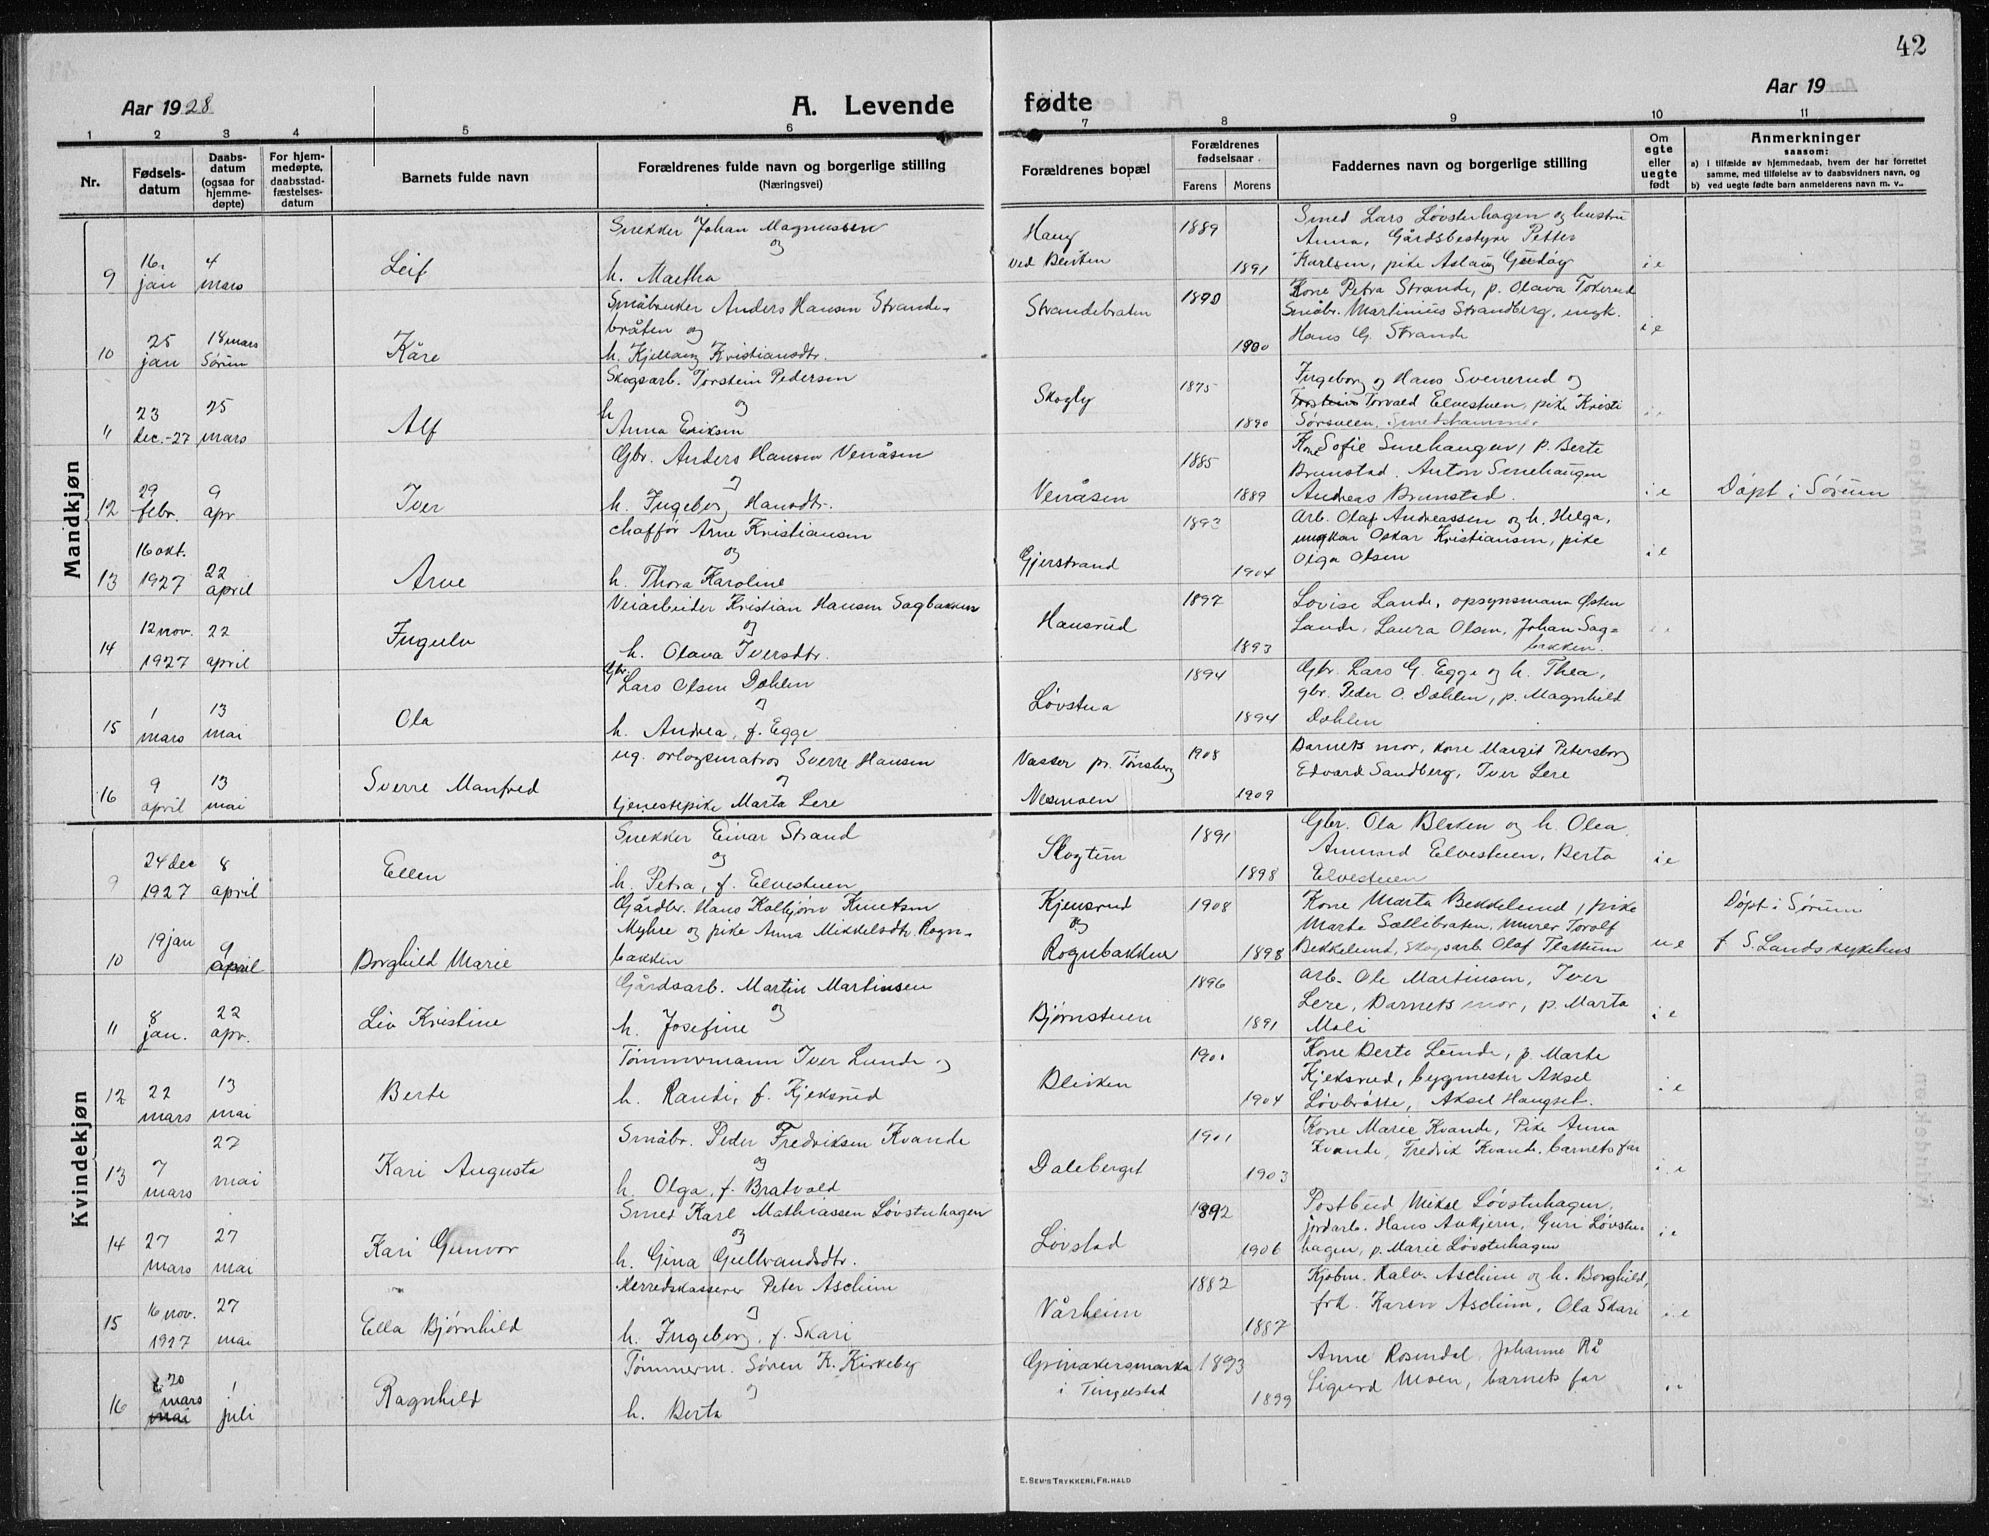 42
Aar 1928
A. Levende fødte
Aar 19
1 2 3 4 5 6 7 8 9 10 11
Nr.
Fødsels-
datum
Daabs-
datum
(ogsaa for
hjemme-
døpte)
For hjem-
medøpte,
daabsstad-
fæstelses-
datum
Barnets fulde navn
Forældrenes fulde navn og borgerlige stilling
(Næringsvei)
Forældrenes bopæl
Forældrenes
fødselsaar
Farens Morens
Faddernes navn og borgerlige stilling
Om
egte
eller
uegte
født
Anmerkninger
saasom:
a) I tilfælde av hjemmedaab, hvem der har forrettet
samme, med tilføielse av to daabsvidners navn, og
b) ved uegte fødte barn anmelderens navn m. v.
Mandkjøn
9 16. jan 4 mars Leif
Snekker Johan Magnussen
og
h. Martha
Haug
1889 1891
Smed Lars Løvstuhagen og hustru
Anna, Gårdsbestyrer Petter
Karlsen, pike Aslaug
i.e
10 25 jan 18 mars Sørum Kåre
Småbruker Anders Hansen Strande-
bråten og
h. Kjellaug Kristiansdtr.
Strandebråten
1890 1900
Kone Petra Strande, p. Olava Tokerud
Småbr. Martinius Strandberg, ungk.
Hans G. Strande
i.e
11 23 dec.-27 25 mars Alf
Skogsarb. Torstein Pedersen
og
h Anna Eriksen
Skogly
1875 1890
Ingeborg og Hans Svenerud og
Torvald Elvestuen, pike Kristi
Sørsveen,
12 29 febr. 9 apr Iver
Gbr. Anders Hansen Venåsen
og
h. Ingeborg Hansdtr.
Venåsen
1885 1889
Kone Sofie Smehaugen, p. Berte
Brunstad. Anton Smehaugen
Andreas Brunstad.
i.e
Døpt i Sørum
13 16 okt. 1927 22 april Arne
chaffør Arne Kristiansen
og
h. Thora Karoline
Gjerstrand
1893 1904
Arb. Olaf Andreassen og h. Helga,
ungkar Oskar Kristiansen, pike
Olga Olsen
i.e
14 12 nov. 1927 22 april Ingulv
Veiarbeider Kristian Hansen Sagbakken
og
h. Olava Iversdtr.
Hansrud
1897 1893
Lovise Lande, opsynsmann Østen
Lande, Laura Olsen, Johan Sag-
bakken.
15 1 mars 13 mai Ola
Gbr. Lars Olsen Dæhlen
og
h. Andrea, f. Egge
Løvstua
1894 1894
Gbr. Lars G. Egge og h. Thea,
gbr. Peder O. Dæhlen, p. Magnhild
Dæhlen
16 9 april 13 mai Sverre Manfred
ug. orlogsmatros Sverre Hansen
og
tjenestepike Marta Lere
Vasser pr. Tønsberg
Nesmoen
1908 1909
Barnets mor, kone Margit Petersborg
Edvard Sandberg, Iver Lere
Kvindekjøn
9 24 dec 1927 8 april Ellen
Snekker Einar Strand
og
h. Petra, f. Elvestuen
Skogtun
1891 1898
Gbr. Ola Bleken og h. Olea,
Amund Elvestuen, Berta
Elvestuen
i.e
10 19 jan 9 april Borghild Marie
Gårdbr. Hans Kolbjørn Knutsen
Myhre og pike Anna Mikkelsdtr. Rogn-
bakken
Kjensrud
og
Rognebakken
1908 1898
Kone Marta Bekkelund, pike
Marte Sætlibraten, murer Torolf
Bekkelund, Skogsarb. Olaf Flattum
u e
Døpt i Sørum
f. S. Lands sykehus
11 8 jan. 22 apr. Liv Kristine
Gårdsarb. Martin Martinsen
og
h. Josefine
Bjørnstuen
1896 1891
Arb. Ole Martinsen, Iver
Lere, Barnets mor, p. Marta
Moli
i.e
12 22 mars 13 mai Berte
Tømmermann Iver Lunde og
h. Randi, f. Kjeksrud
Bleiken
1901 1904
Kone Berte Lunde, p. Marte
Kjeksrud, bygmester Aksel
Løvbråtte, Aksel Haugset.
i.e
13 7 mars 27 mai Kari Augusta
Småbr. Peder Fredriksen Kvande
og
h. Olga, f. Bratvold
Daleberget
1901 1903
Kone Marie Kvande, Pike Anna
Kvande, Fredrik Kvande, barnets far
i.e
14 27 mars 27 mai Kari Gunvor
Smed Karl Mathiassen Løvstuhagen
og
h. Gina Gulbrandsdtr.
Løvstad
1892 1906
Postbud Mikal Løvstuhagen,
jordarb. Hans Aukjern, Guri Løvstu-
hagen, p. Marie Løvstuhagen
i.e
15 16 nov. 1927 27 mai Ella Bjørnhild
Herredskasserer Peter Aschim
og
h. Ingeborg, f. Skari
Vårheim
1882 1887
Kjøbm. Halv. Aschim og h. Borghild,
frk. Karen Aschim, Ola Skari
i.e
16 20 mars mai 1 juli Ragnhild
Tømmerm. Søren K. Kirkeby
og
h. Berta
Grinakersmarka
i Tingelstad
1893 1899
Anne Rosendal, Johanne Rå
Sigurd Moen, barnets far
E. SEM'S TRYKKERI, FR.HALD